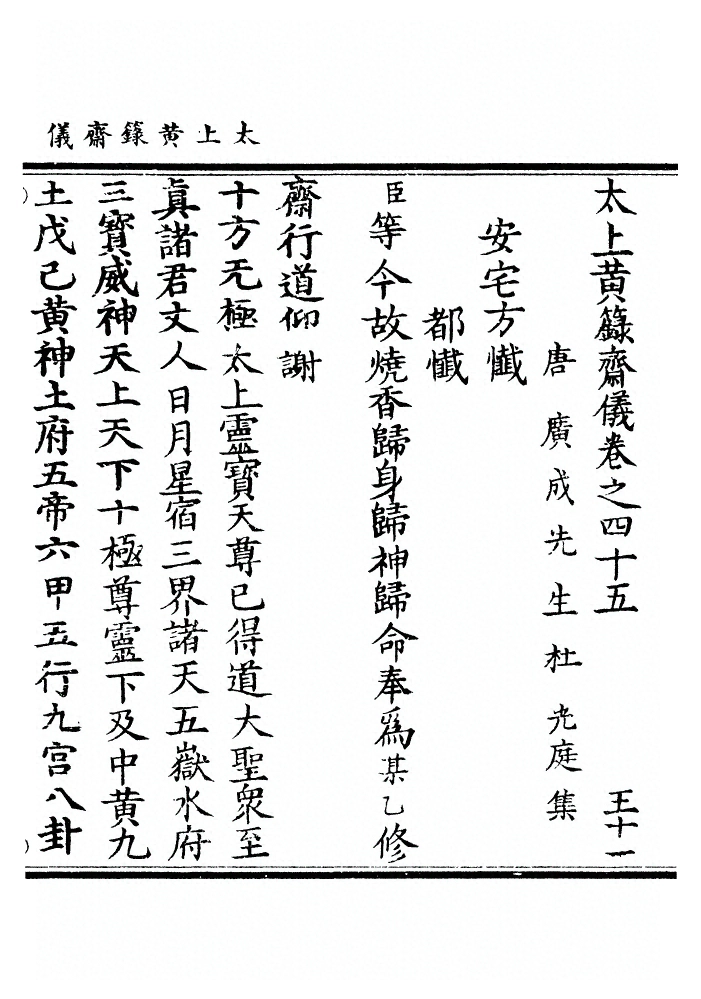 太上黄籙齋儀
太上黄籙齋儀卷之四十五 王十一
唐廣成先生杜光庭集
安宅方懺
都懺
臣等今故燒香歸身歸神歸命奉爲某乙修
齋行道仰謝
十方无極太上靈寶天尊已得道大聖衆至
真諸君丈人日月星宿三界諸天五嶽水府
三寶威神天上天下十極尊靈下及中黄九
土戊己黄神土府五帝六甲五行九宫八卦